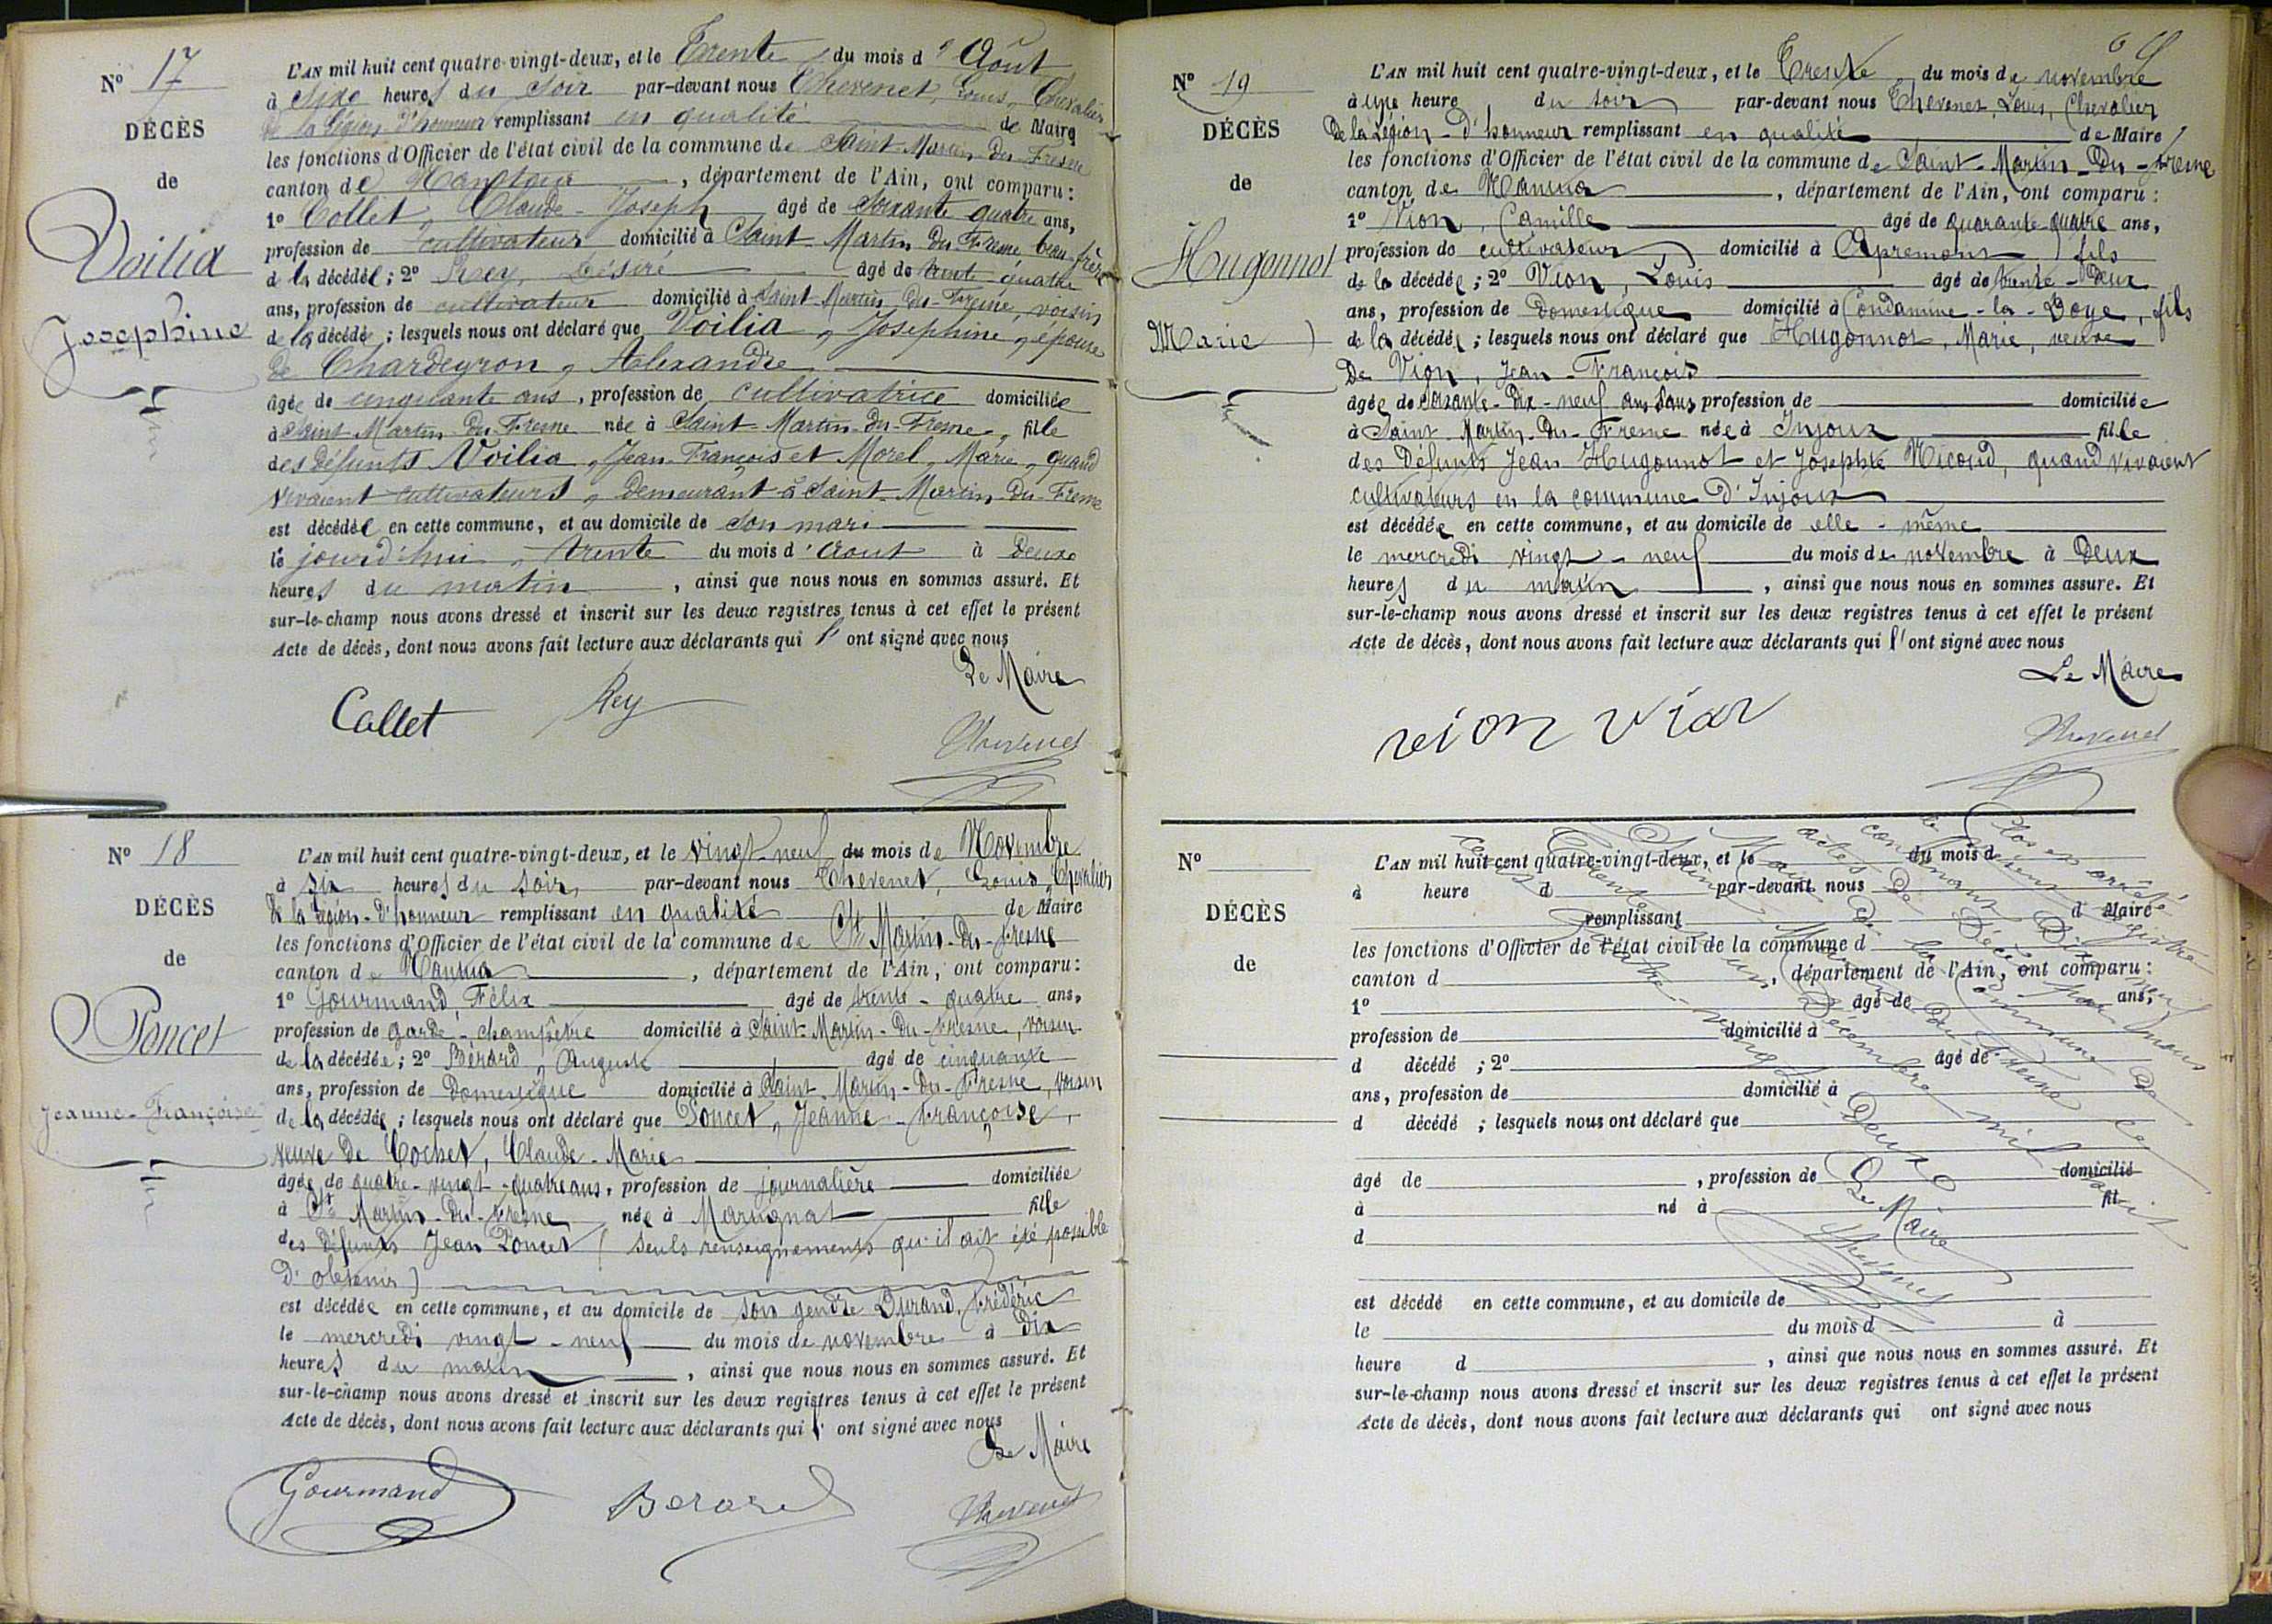 N° 17
DÉCÈS
de
Voilia
Josephine
L'AN mil huit cent quatre-vingt-deux, et le Trente du mois d'Août
à Sixe heures du Soir par-devant nous Thevenet, Louis, Chevalier
de la Légion d'honneur remplissant en qualité de Maire
les fonctions d'Officier de l'état civil de la commune de Saint-Martin-Du-Fresne
canton de Nantua, département de l'Ain, ont comparu:
1° Collet, Claude-Joseph âgé de Soixante quatre ans,
profession de cultivateur domicilié à Saint Martin Du Fresne, beau-frère
de la décédée; 2° Rey, Désiré âgé de trente quatre
ans, profession de cultivateur domicilié à Saint Martin-Du-Fresne, voisin
de la décédée; lesquels nous ont déclaré que Voilia, Josephine, épouse
de Chardeyron, Alexandre
âgée de cinquante ans, profession de cultivatrice domiciliée
à Saint Martin Du Fresne née à Saint-Martin-Du-Fresne, fille
des défunts Voilia, Jean-François et Morel, Marie, quand
vivaient cultivateurs, demeurant à Saint-Martin-Du-Fresne
est décédée en cette commune, et au domicile de son mari
le jourd'hui, trente du mois d'Aout à Deuxe
heures du matin, ainsi que nous nous en sommes assuré. Et
sur-le-champ nous avons dressé et inscrit sur les deux registres tenus à cet effet le présent
Acte de décès, dont nous avons fait lecture aux déclarants qui l'ont signé avec nous
Le Maire
Collet Rey
Thevenet
N° 18
DÉCÈS
de
Poncet
Jeanne-Françoise
L'AN mil huit cent quatre-vingt-deux, et le vingt-neuf du mois de Novembre
à six heures du soir par-devant nous Thevenet, Louis, Chevalier
de la Légion-d'honneur remplissant en qualité de Maire
les fonctions d'Officier de l'état civil de la commune de St Martin-Du-Fresne
canton de Nantua, département de l'Ain, ont comparu:
1° Gourmand, Félix âgé de trente-quatre ans,
profession de garde-champêtre domicilié à Saint-Martin-Du-Fresne, voisin
de la décédée; 2° Bérard, Auguste âgé de cinquante
ans, profession de Domestique domicilié à Saint-Martin-Du-Fresne, voisin
de la décédée; lesquels nous ont déclaré que Poncet, Jeanne-Françoise,
veuve de Cochet, Claude-Marie
âgée de quatre-vingt-quatre ans, profession de journalière domiciliée
à St Martin-Du-Fresne née à Marignat fille
des défunts Jean Poncet (seuls renseignements qu'il ait été possible
D'obtenir)
est décédée en cette commune, et au domicile de son gendre Durand, Frédéric
le mercredi vingt-neuf du mois de novembre à Dix
heures du matin, ainsi que nous nous en sommes assuré. Et
sur-le-champ nous avons dressé et inscrit sur les deux registres tenus à cet effet le présent
Acte de décès, dont nous avons fait lecture aux déclarants qui l'ont signé avec nous
Le Maire
Gourmand Berard
Thevenet
N° 19
DÉCÈS
de
Hugonnot
Marie
L'AN mil huit cent quatre-vingt-deux, et le Trente du mois de novembre
à une heure du soir par-devant nous Thevenet, Louis, Chevalier
De la Légion-d'honneur remplissant en qualité de Maire
les fonctions d'Officier de l'état civil de la commune de Saint-Martin-Du-Fresne
canton de Nantua, département de l'Ain, ont comparu:
1° Vion, Camille âgé de quarante-quatre ans,
profession de cultivateur domicilié à Apremont fils
de la décédée; 2° Vion, Louis âgé de trente-Deux
ans, profession de Domestique domicilié à Condamine-la-Doye, fils
de la décédée; lesquels nous ont déclaré que Hugonnot, Marie, veuve
De Vion, Jean-François
âgée de Soixante-Dix-neuf ans Sans profession de domiciliée
à Saint-Martin-Du-Fresne née à Injoux fille
des Défunts Jean Hugonnot et Josephte Nicoud, quand vivaient
cultivateurs en la commune D'Injoux
est décédée en cette commune, et au domicile de elle-même
le mercredi vingt-neuf du mois de novembre à Deux
heures du matin, ainsi que nous nous en sommes assuré. Et
sur-le-champ nous avons dressé et inscrit sur les deux registres tenus à cet effet le présent
Acte de décès, dont nous avons fait lecture aux déclarants qui l'ont signé avec nous
Le Maire
vion vion
Thevenet
N°
DÉCÈS
de
L'AN mil huit cent quatre-vingt-deux, et le du mois de
à heure d par-devant nous
remplissant d Maire
les fonctions d'Officier de l'état civil de la commune d
canton d , département de l'Ain, ont comparu:
1° âgé de ans,
profession de domicilié à
d décédé ; 2° âgé de
ans, profession de domicilié à
d décédé ; lesquels nous ont déclaré que
âgé de , profession de domicilié
à né à fil
d
est décédé en cette commune, et au domicile de
le du mois d à
heure d , ainsi que nous nous en sommes assuré. Et
sur-le-champ nous avons dressé et inscrit sur les deux registres tenus à cet effet le présent
Acte de décès, dont nous avons fait lecture aux déclarants qui ont signé avec nous
Clos et arrêté
le présent registre
contenant Dix-neuf
actes de Décès par nous
Maire de la Commune de
Saint-Martin-du-Fresne ce
Trente-un Décembre mil huit
cent quatre-vingt-Deux
Le Maire
Thevenet